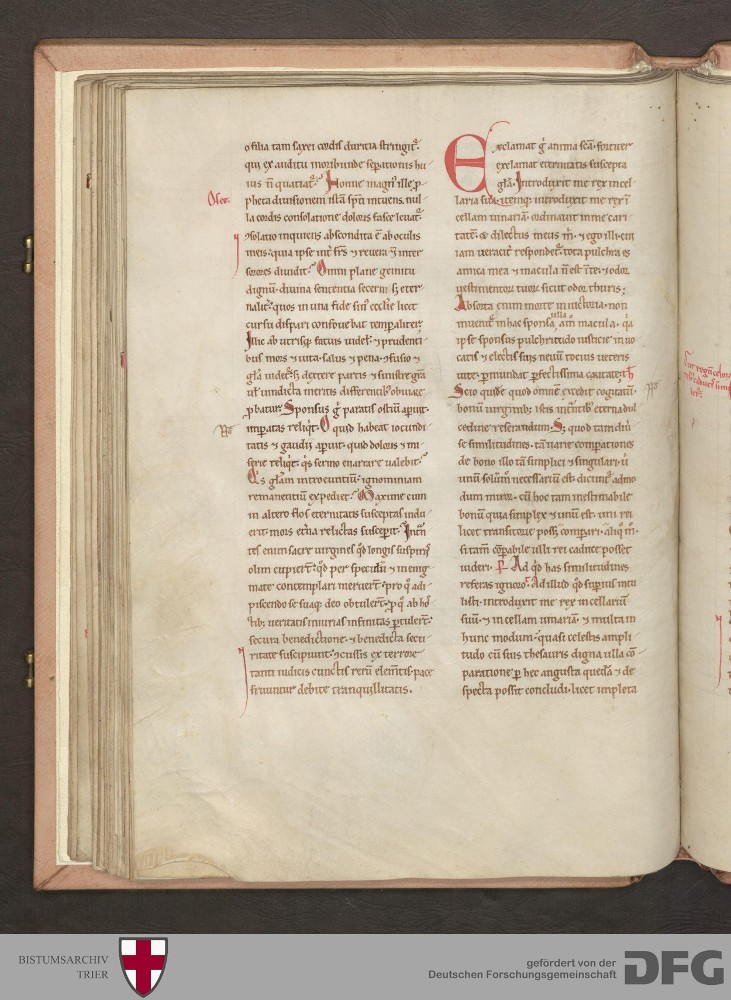 o filia tam saxei cordis duricia stringit᷑·
qui ex auditu moribunde sepationis hu
ius n̄ quatiat᷑· Nonne magn᷒ ille p̱
Osee·
pheta diuisionem istā sp̄u intuens· nul
la cordis consolatione doloris fasce leuat᷑·
ꝯsolatio inquiens abscondita ē ab oculis
meis· quia ipse int̄ fr̄s ⁊
sorores diuidit᷑· Omni plane gemitu
dignū· diuina sententia secerni
naliť· quos in una fide sin᷒ eccl̄ie licet
cursu dispari confouebat temꝑaliter·
Illic ab utrisq; ⁊ prudenti
bus mors ⁊ uita· salus ⁊ pena· ꝯfusio ⁊
gl̄a dextere partis ⁊ sinistre
uindicta meritis differentib᷒ obuiare
ꝓbatur· Sponsus g̊ paratis ostiū aꝑuit·
imꝑatas reliq̇t· O quid habeat iocundi
tatis ⁊ gaudii aꝑuit· quid doloris ⁊ mi
serie reliq̇t· q̇s sermo enarrare ualebit·
gl̄am introeuntiū· ignominiam
remanentiū expediet· Maxime cum
in altero flos eternitatis susceptas indu
erit· mors et̄na relictas susceꝑit·
tes enim sacre uirgines qd̄ longis suspiriis
olim cupier̄t· qd̄ per speculū ⁊ in enig
mate contemplari meruer̄t· pro q̊ adi
piscendo se suaq; deo obtuler̄t· ꝓ q̊ ab ho
stib; ueritatis iniurias infinitas ꝑtuler̄t·
secura benedictione· ⁊ benedicta secu
ritate suscipiunt· ⁊ cussis ex terrore
tanti iudicis cunctis rerū elem̄tis· pace
fruuntur debite tranquillitatis·
Exclamat g̊ anima sc̄a· fortiter
exclamat eternitatis suscepta
gl̄a· Introduxit me rex in cel
laria sua· itemq; introduxit me rex ī
cellam uinariā· ordinauit in me cari
tatē· ⁊ dilectus meus m̄· ⁊ ego illi· cui
iam ueracit̄ respondet᷑· tota pulchra es
amica mea ⁊ macula n̄ est ī te· ⁊ odor
uestimentor̄ tuor̄ sicut odor thuris·
Absorta enim morte in uictoria· non
inuenit᷑ in hac sponsa ulla macula· q̇a
ipse sponsus pulchritudo iusticie in uo
catis ⁊ electis suis neuū tocius ueteris
uite· ꝑmundat ꝑfectissima caritate·
Scio quidē quod omnē excedit cogitatū·
bonū uirginib; istis eterna dul
cedine reserandum· S; quod tam diu
se similitudines· tā uarie comparationes
de bono illo tā simplici ⁊ singulari· ū
unū solūm̊ necessariū est· dicunt᷑ admo
dum miror· cū hoc tam inestimabile
bonū quia simplex ⁊ unū est· uni rei
licet transitorie possȝ comparari· aliq̊ m̊·
si tam̄ cōꝑabile ulli rei caduce posset
uideri· P Ad qd̄ has similitudines
referas ignoro· Ad illud qd̄ superius intu
listi· introduxit me rex in cellariū
suū· ⁊ in cellam uinariā· ⁊ multa in
hunc modum· quasi celestis ampli
tudo cū suis thesauris digna ulla cō-
paratione ꝑ hec angusta quedā ⁊ de
specta possit concludi· licet impleta
BISTUMSARCHIV
TRIER
gefördert von der
Deutschen Forschungsgemeinschaft
DFG